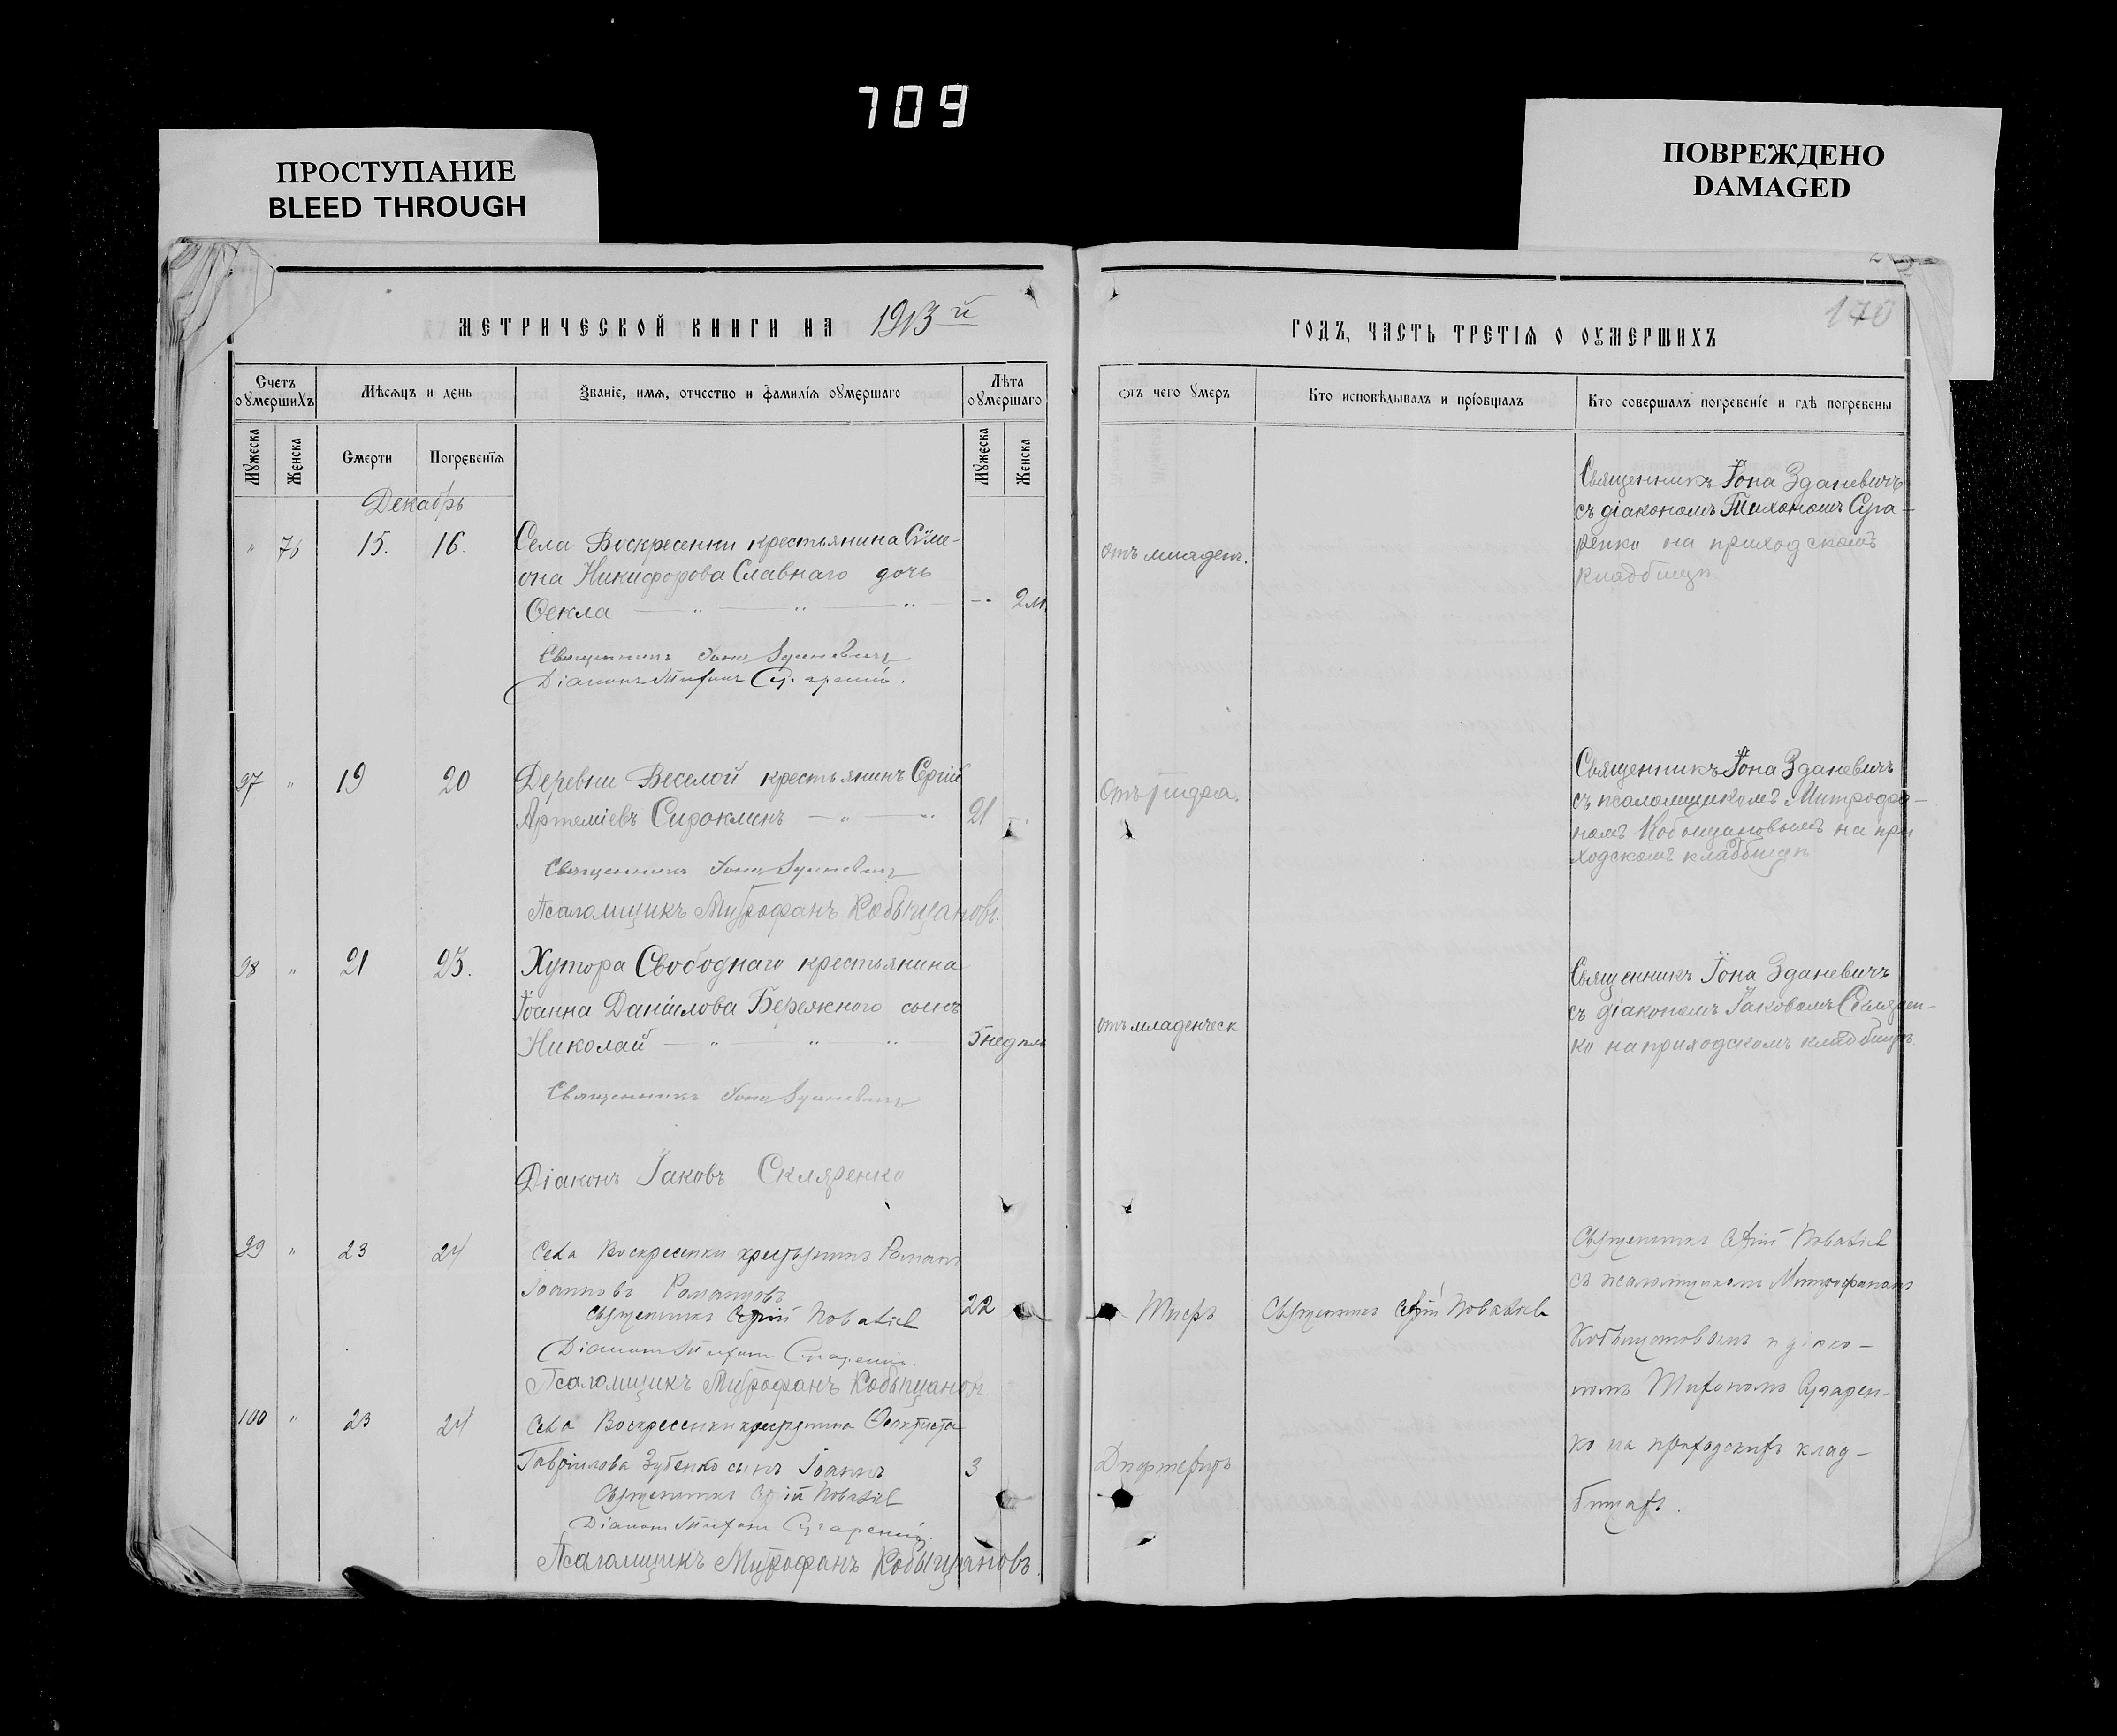 709
ПРОСТУПАНИЕ
BLEED THROUGH
ПОВРЕЖДЕНО
DAMAGED
МЕТРИЧЕСКОЙ КНИГИ НА 1913й
Счетъ оумершихъ
Мѣсяцъ и день
Званіе, имя, отчество и фамилія оумершаго
Лѣта оумершаго
Мужеска
Женска
Смерти
Погребенія
Мужеска
Женска
Декабрь
" 76 15. 16. Села Воскресенки крестьянина Сѵме-
она Никифорова Славнаго дочь
Ѳекла — " — " — " — -- 2 м.
Священникъ Іона Зданевичъ
Діаконъ Тихонъ
97 " 19 20 Деревни Веселой крестьянинъ Сергій
Артеміевъ Сироклинъ — " — " 21 - "
Священникъ Іона Зданевичъ
Псаломщикъ Митрофанъ Кобыщановъ.
98 " 21 25. Хутора Свободнаго крестьянина
Іоанна Даніилова Бережного сынъ
Николай — " — " — " — 5 недѣль
Священникъ Іона Зданевичъ
Діаконъ Іаковъ Скляренко
99 " 23 24 Села Воскресенки крестьянинъ Романъ
Іоанновъ Романцовъ 22
Священникъ
Діаконъ Тихонъ
Псаломщикъ Митрофанъ Кобыщановъ
100 " 23 24 Села Воскресенки крестьянина Ѳеоктиста
Гавріилова Зубенко сынъ Іоаннъ 3
Священникъ
Діаконъ Тихонъ
Псаломщикъ Митрофанъ Кобыщановъ.
170
ГОДЪ, ЧАСТЬ ТРЕТІЯ О ОУМЕРШИХЪ
отъ чего умеръ
Кто исповѣдывалъ и пріобщалъ
Кто совершалъ погребеніе и гдѣ погребены
отъ младен.
Священникъ Іона Зданевичъ
съ діакономъ Тихономъ Суга-
ренко на приходскомъ
кладбищѣ
Отъ тифа.
Священникъ Іона Зданевичъ
съ псаломщикомъ Митрофа-
номъ Кобыщановымъ на при
ходскомъ кладбищѣ
отъ младенческ
Священникъ Іона Зданевичъ
съ діакономъ Іаковомъ Скляren-
ко на приходскомъ кладбищѣ.
Тифъ
Священникъ
Священникъ
съ псаломщикомъ Митрофаномъ
Кобыщановымъ и діако-
номъ Тихономъ Сугарен-
ко на приходскихъ клад-
бищахъ.
Дифтеритъ